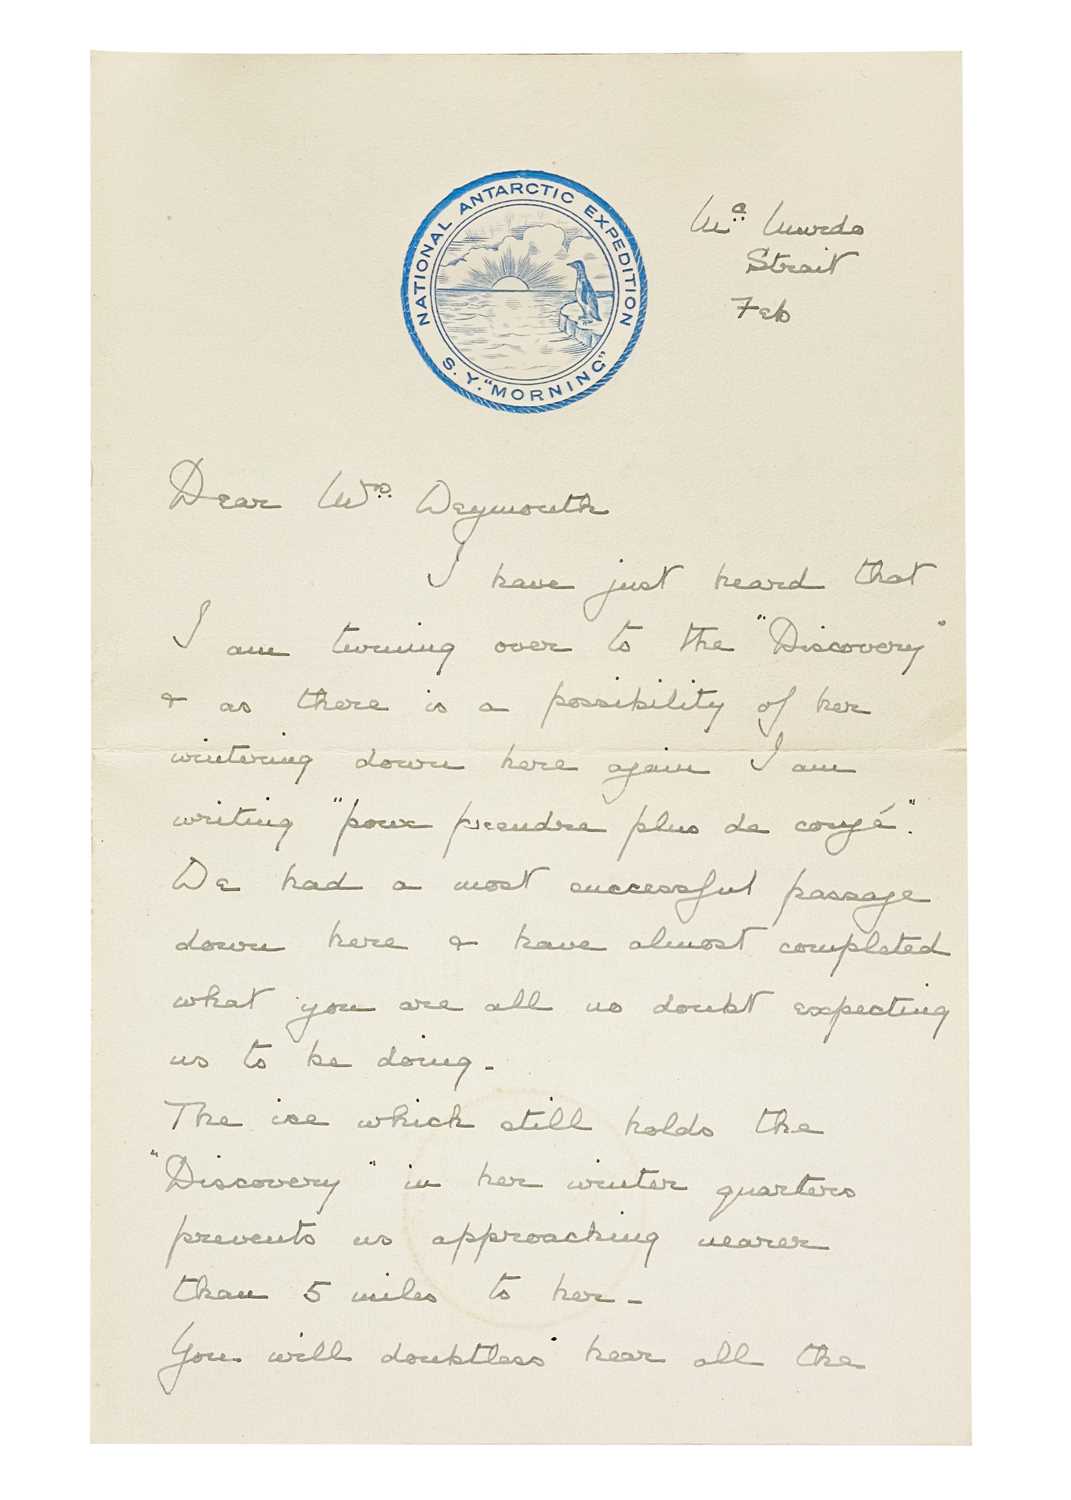 NATIONAL ANTARCTIC EXPEDITION
S.Y. "MORNING"
Mc Murdo
Strait
Feb
Dear Mrs Weymouth
I have just heard that
I am turning over to the "Discovery"
& as there is a possibility of her
wintering down here again I am
writing "pour prendre plus de congé".
We had a most successful passage
down here & have almost completed
what you are all no doubt expecting
us to be doing -
The ice which still holds the
"Discovery" in her winter quarters
prevents us approaching nearer
than 5 miles to her -
You will doubtless hear all the